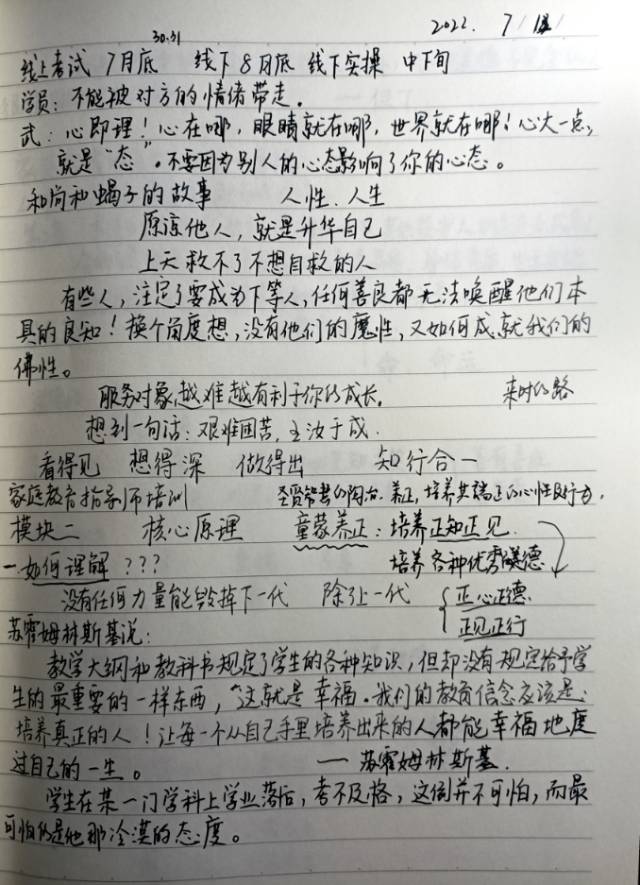 2022. 7
30.31
线上考试 7月底 线下8月底 线下实操 中下旬
学员：不能被对方的情绪带走。
武：心即理！心在哪，眼睛就在哪，世界就在哪！心大一点，
就是“态”。不要因为别人的心态影响了你的心态。
和尚和蝎子的故事 人性、人生
原谅他人，就是升华自己
上天救不了不想自救的人
有些人，注定了要成为下等人，任何善良都无法唤醒他们本
具的良知！换个角度想，没有他们的魔性，又如何成就我们的
佛性。
服务对象越难越有利于你的成长。 来时的路
想到一句话：艰难困苦，玉汝于成.
看得见 想得深 做得出 知行合一
家庭教育指导师培训 圣贤智慧的陶冶、养正，培养其端正的心性及行为.
模块二 核心原理 童蒙养正：培养正知正见.
一、如何理解？？？ 培养各种优秀美德
没有任何力量能毁掉下一代 除了上一代 { 正心正德.
正见正行
苏霍姆林斯基说：
教学大纲和教科书规定了学生的各种知识，但却没有规定给予学
生的最重要的一样东西，“这就是幸福。我们的教育信念应该是：
培养真正的人！让每一个从自己手里培养出来的人都能幸福地度
过自己的一生。 —— 苏霍姆林斯基.
学生在某一门学科上学业落后，考不及格，这倒并不可怕，而最
可怕的是他那冷漠的态度。